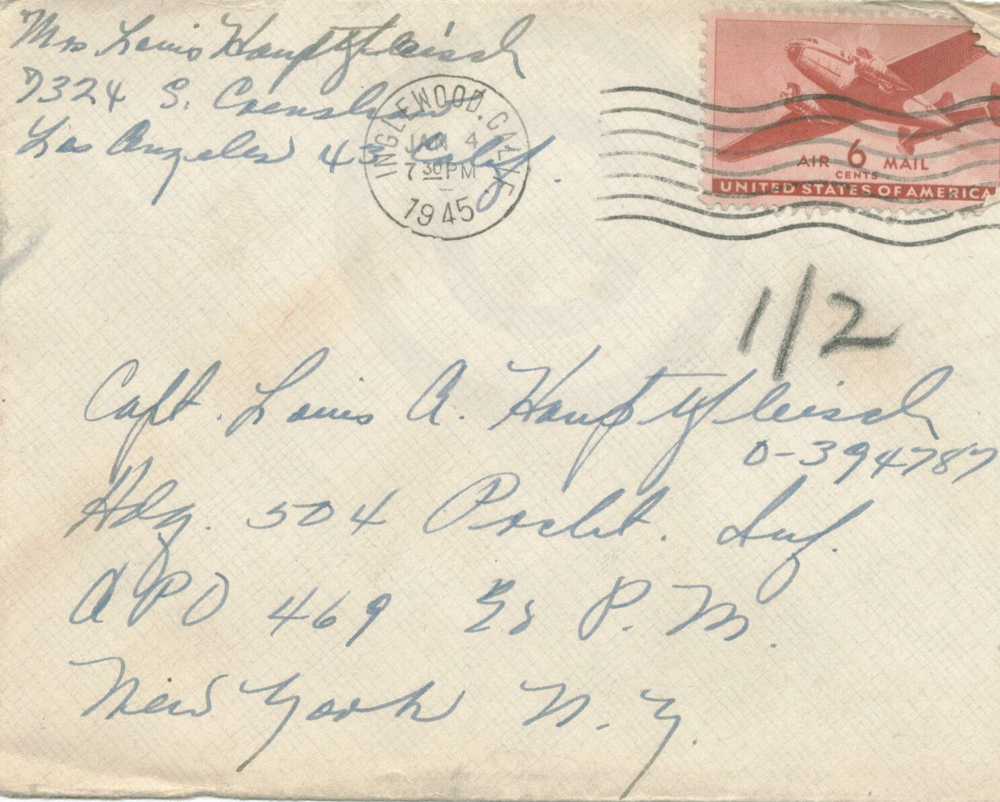 Mrs Louis Hauptfleisch
7324 S. Crenshaw
Los Angeles 43 Calif.
INGLEWOOD, CALIF.
JAN 4
7 30 PM
1945
AIR 6 MAIL
CENTS
UNITED STATES OF AMERICA
1/2
Capt. Louis A. Hauptfleisch
O-394787
Hdq. 504 Prcht. Inf.
APO 469 % P. M.
New York N. Y.